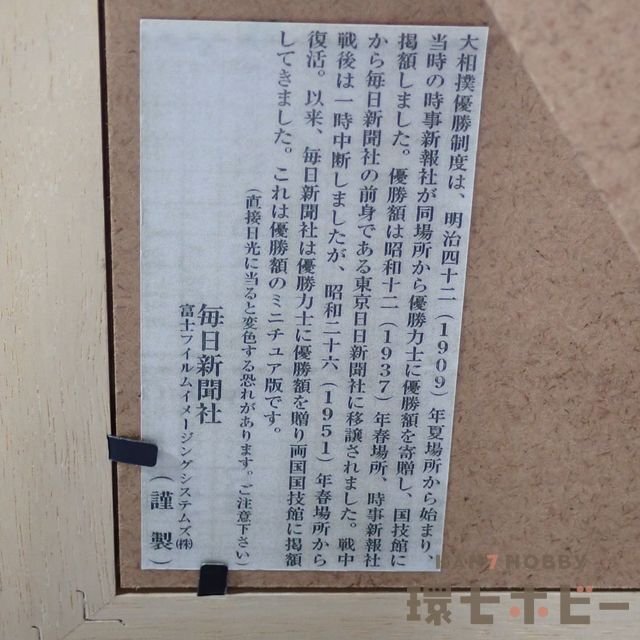 大相撲優勝制度は、明治四十二（1909）年夏場所から始まり、
当時の時事新報社が同場所から優勝力士に優勝額を寄贈し、国技館に
掲額しました。優勝額は昭和十二（1937）年春場所、時事新報社
から毎日新聞社の前身である東京日日新聞社に移譲されました。戦中
戦後は一時中断しましたが、昭和二十六（1951）年春場所から
復活。以来、毎日新聞社は優勝力士に優勝額を贈り両国国技館に掲額
してきました。これは優勝額のミニチュア版です。
（直接日光に当ると変色する恐れがあります。ご注意下さい）
毎日新聞社
富士フイルムイメージングシステムズ㈱
（謹製）
KAN7HOBBY
環七ホビー